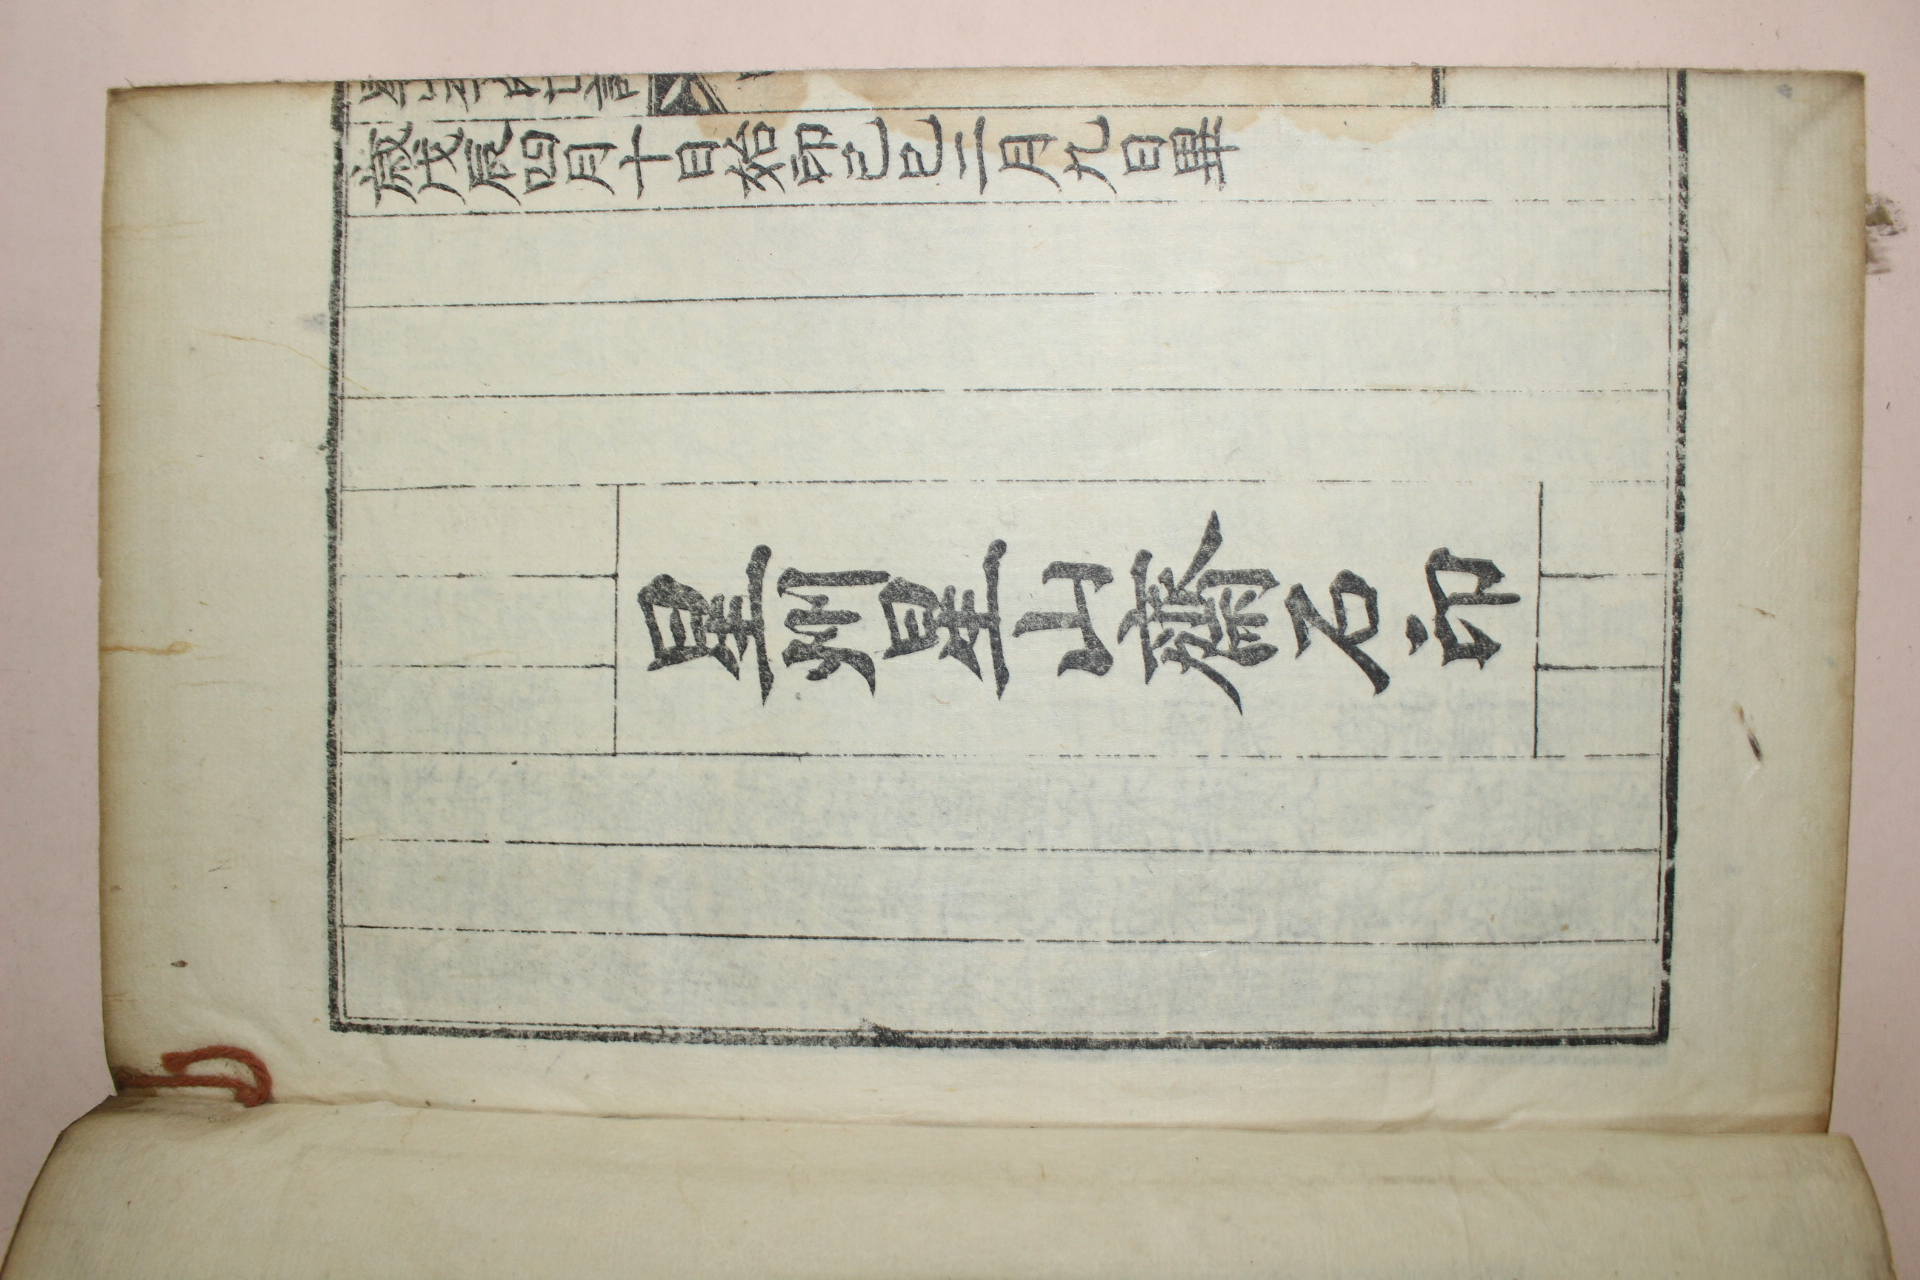 歲戊辰四月十日始印己巳二月九日畢
星州星山齋石印